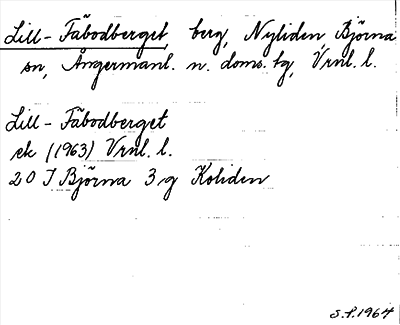 Lill-Fäbodberget, berg, Nyliden, Björna
sn, Ångermanl. n. doms. tg, Vrnl. l.
Lill-Fäbodberget
ek (1963) Vrnl. l.
20 I Björna 3 g Koliden
S.P. 1964